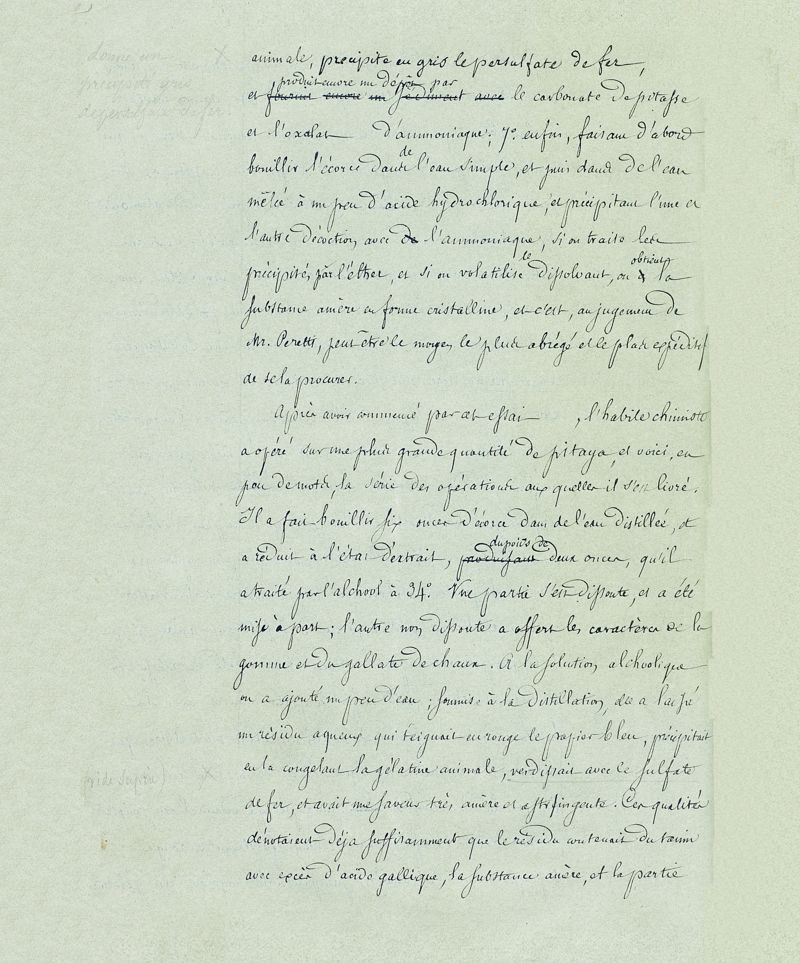 animale, précipite en gris le persulfate de fer,
produit encore un dépôt par
et fournit encore un sédiment avec le carbonate de pitasse
et l'oxalat d'ammoniaque; 7.° enfin, faisant d'abord
bouillir l'écorce dans de l'eau simple, et puis dans de l'eau
mêlée à un peu d'acide hydrochlorique, et précipitant l'une et
l'autre décoction avec de l'ammoniaque, si on traite les
précipités par l'éther, et si on volatilise le dissolvant, on obtient la
substance amère en forme cristalline, et c'est, au jugement de
Mr. Peretti, peut être le moyen le plus abrégé et le plus expéditif
de se la procurer.
Après avoir commencé par cet essai , l'habile chimiste
a opéré sur une plus grande quantité de pitaya, et voici, en
peu de mots, la série des opérations aux quelles il s'est livré.
Il a fait bouillir six onces d'écorce dans de l'eau distillée, et
du poids de
a réduit à l'état d'extrait, produisant deux onces, qu'il
a traité par l'alchool à 34.° Une partie s'est dissoute, et a été
mise à part; l'autre non dissoute a offert les caractères de la
gomme et du gallate de chaux. A la solution alchoolique
on a ajouté un peu d'eau; soumise à la distillation, elle a laissé
un résidu aqueux qui teignait en rouge le papier bleu, précipitait
en la congelant la gélatine animale, verdissait avec le sulfate
(vide supra) X
de fer, et avait une saveur très amère et astringente. Ces qualités
dénotaient déja suffisamment que le résidu contenait du tannin
avec excès d'acide gallique, la substance amère, et la partie